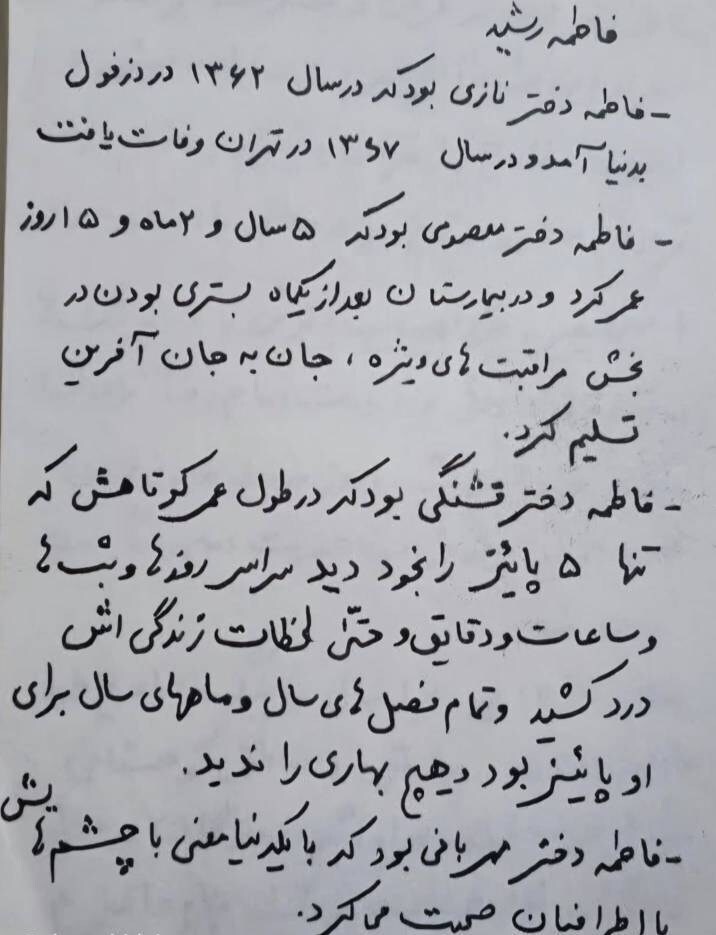 فاطمه رشید
- فاطمه دختر نازی بود که در سال ۱۳۶۲ در دزفول
بدنیا آمد و در سال ۱۳۶۷ در تهران وفات یافت
- فاطمه دختر معصومی بود که ۵ سال و ۲ ماه و ۱۵ روز
عمر کرد و در بیمارستان بعد از یکماه بستری بودن در
بخش مراقبت های ویژه ، جان به جان آفرین
تسلیم کرد.
- فاطمه دختر قشنگی بود که در طول عمر کوتاهش که
تنها ۵ پائیز را بخود دید سراسر روزها و شب ها
و ساعات و دقایق و حتّی لحظات زندگی اش
درد کشید و تمام فصل های سال و ماههای سال برای
او پائیز بود و هیچ بهاری را ندید.
- فاطمه دختر مهربانی بود که با یکدنیا معنی با چشم هایش
با اطرافیان صحبت می کرد.